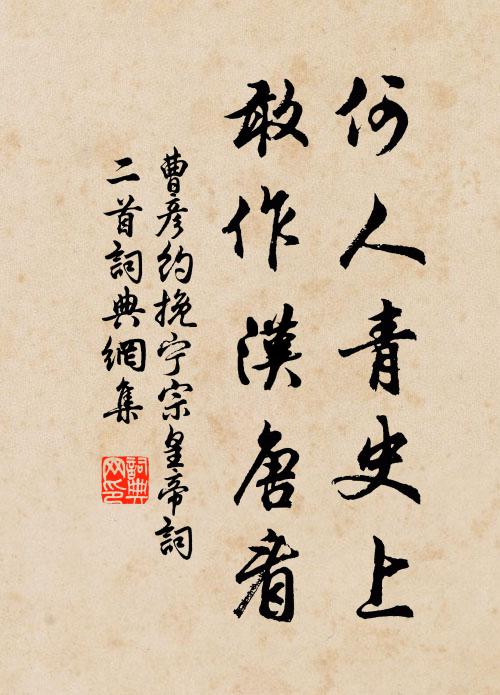 何人青史上
敢作漢唐看
曹彥約挽宁宗皇帝詞
二首詞典網集
詞典
网印